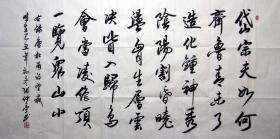 岱宗夫如何
齊魯青未了
造化鍾神秀
陰陽割昏曉
盪胸生層雲
決眥入歸鳥
會當凌絕頂
一覽眾山小
右錄唐杜甫